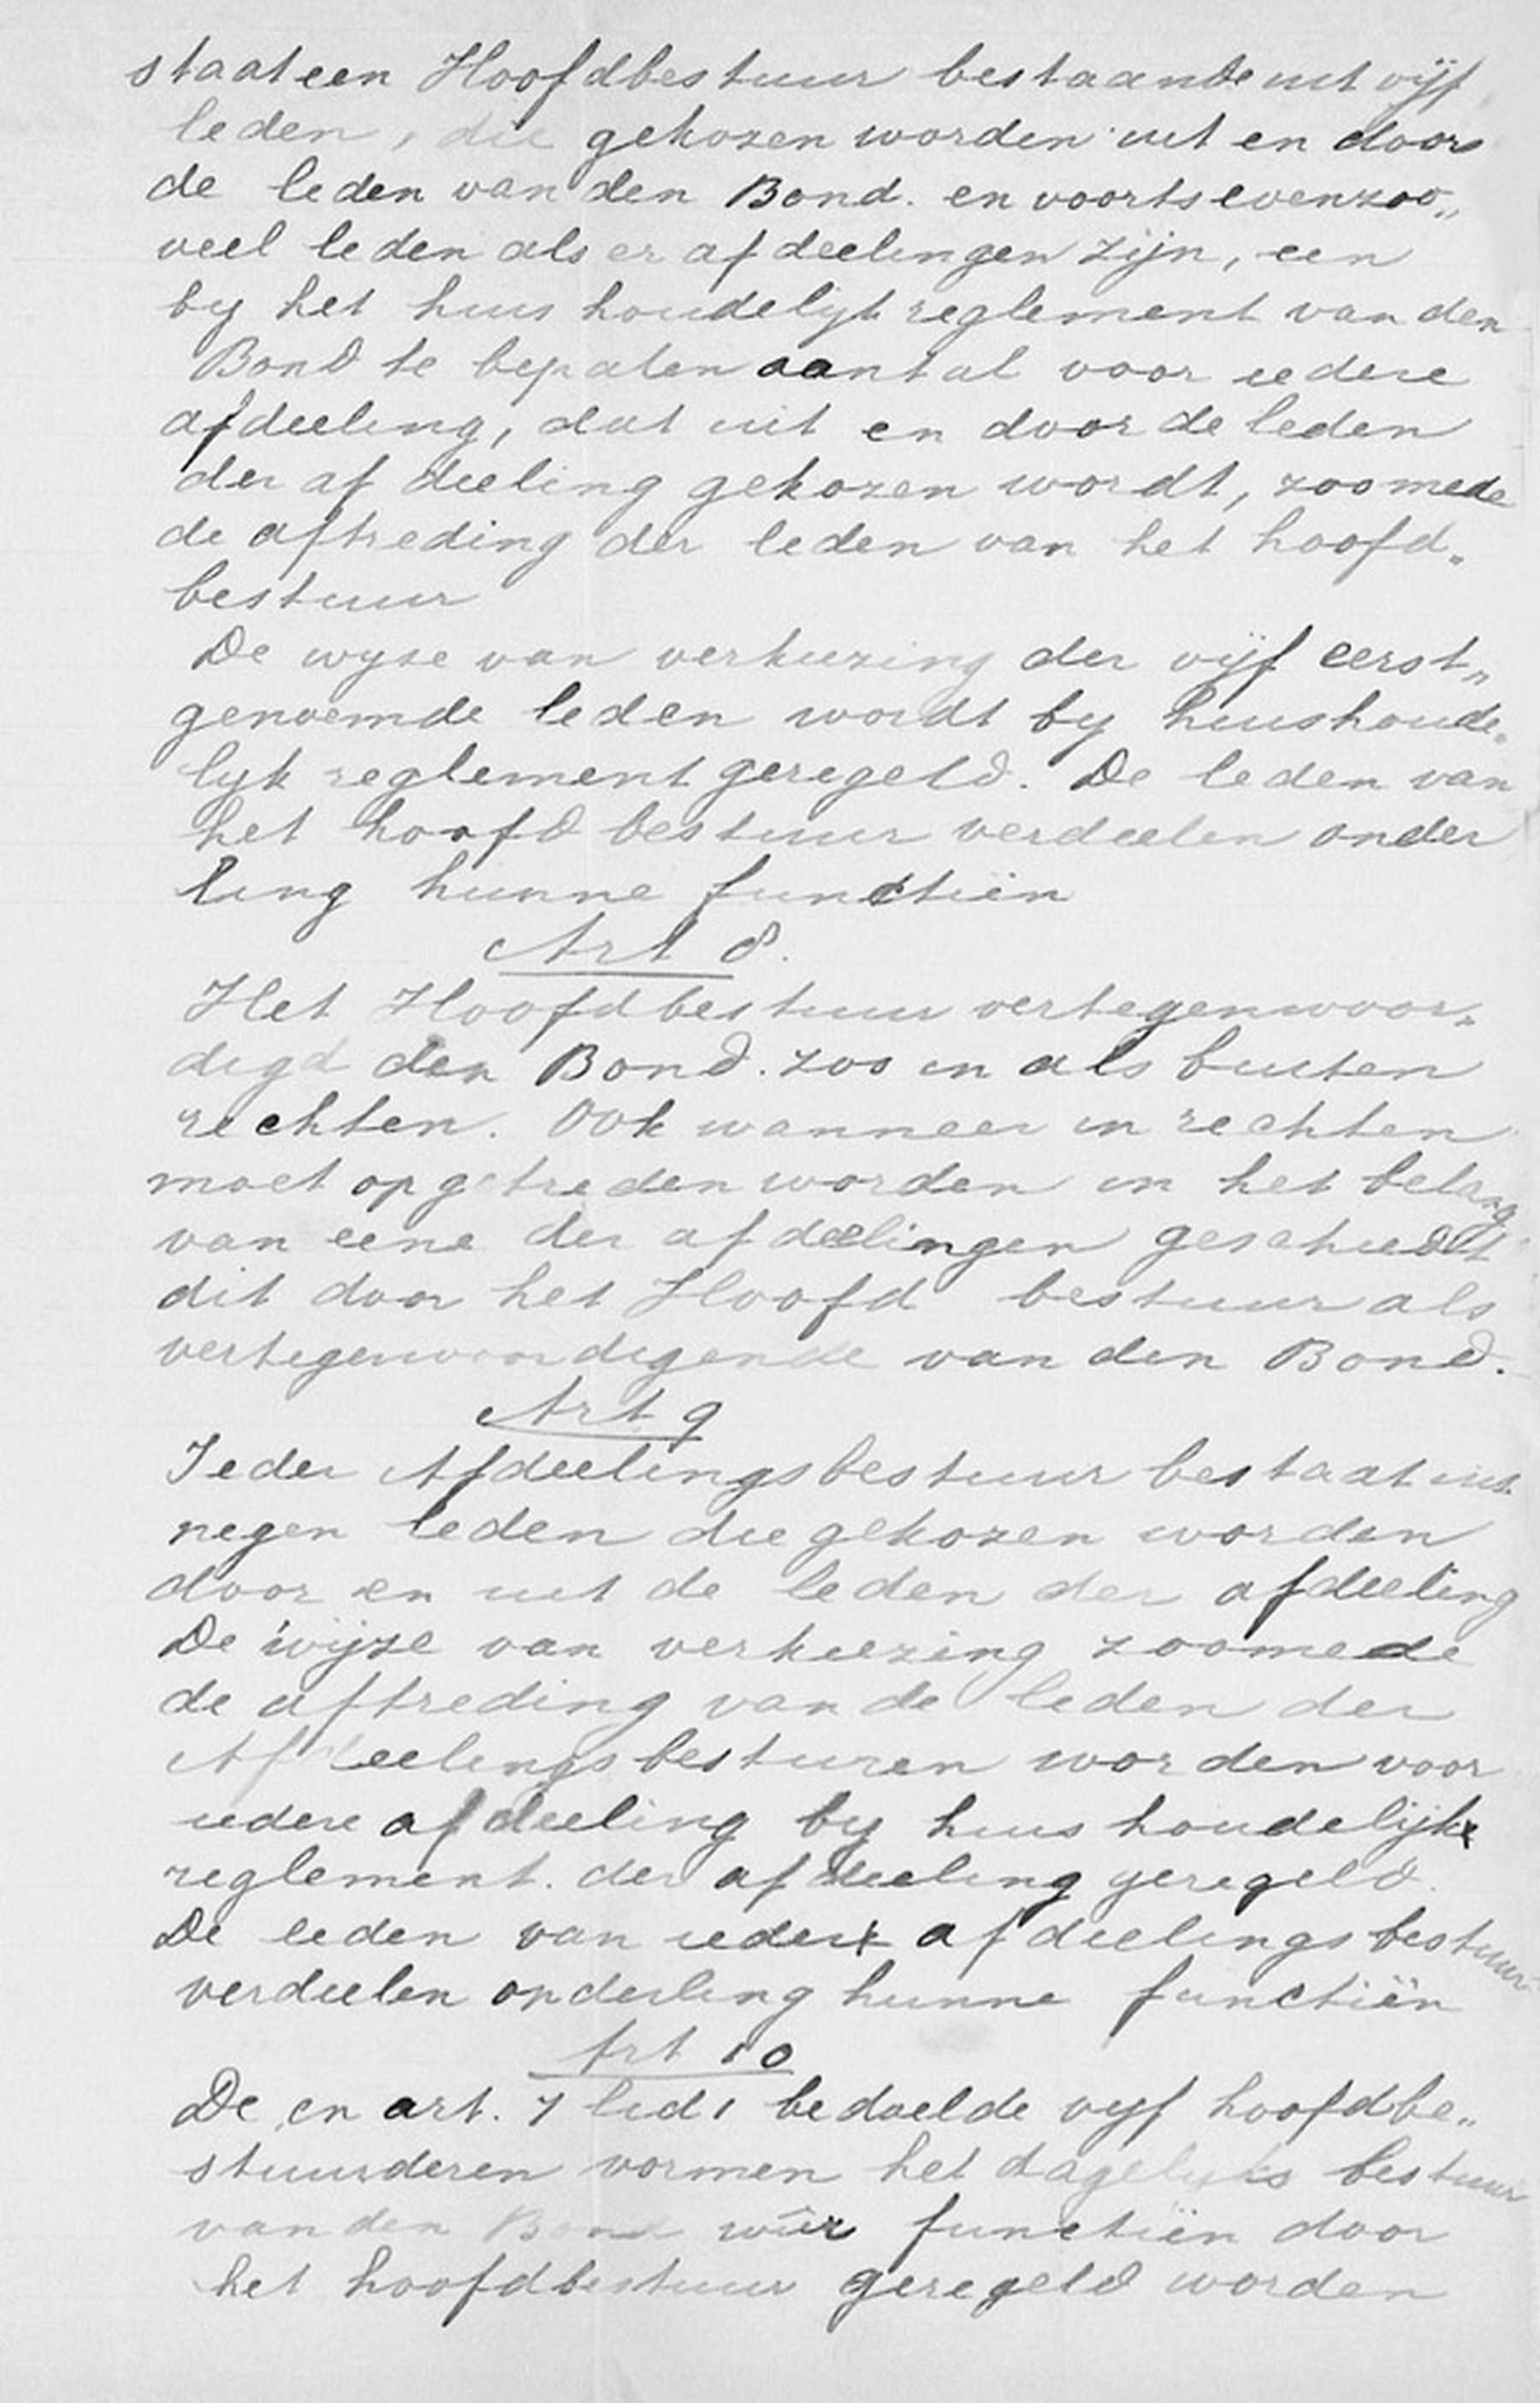 staat een Hoofdbestuur bestaande uit vijf
leden, die gekozen worden uit en door
de leden van den Bond. en voorts evenzoo„
veel leden als er afdeelingen zijn, een
by het huishoudelijk reglement van den
Bond te bepalen aantal voor iedere
afdeeling, dat uit en door de leden
der afdeeling gekozen wordt, zoomede
de aftreding der leden van het hoofd„
bestuur
De wyse van verkiezing der vijf eerst„
genoemde leden wordt by huishoude„
lyk reglement geregeld. De leden van
het hoofdbestuur verdeelen onder
ling hunne functiën
Art 8.
Het Hoofdbestuur vertegenwoor„
digd den Bond. zoo in als buiten
rechten. Ook wanneer in rechten
moet opgetreden worden in het belang
van eene der afdeelingen geschiedt
dit door het Hoofd bestuur als
vertegenwoordigende van den Bond.
Art 9
Ieder Afdeelingsbestuur bestaat uit
negen leden die gekozen worden
door en uit de leden der afdeeling
De wijze van verkiezing zoomede
de aftreding van de leden der
Afdeelingsbesturen worden voor
iedere afdeeling by huishoudelijk
reglement. der afdeeling geregeld.
De leden van ieder afdeelingsbestuur
verdeelen onderling hunne functiën
Art 10
De in art. 7 lid 1 bedoelde vyf hoofdbe„
stuurderen vormen het dagelyks bestuur
van den Bond wier functiën door
het hoofdbestuur geregeld worden